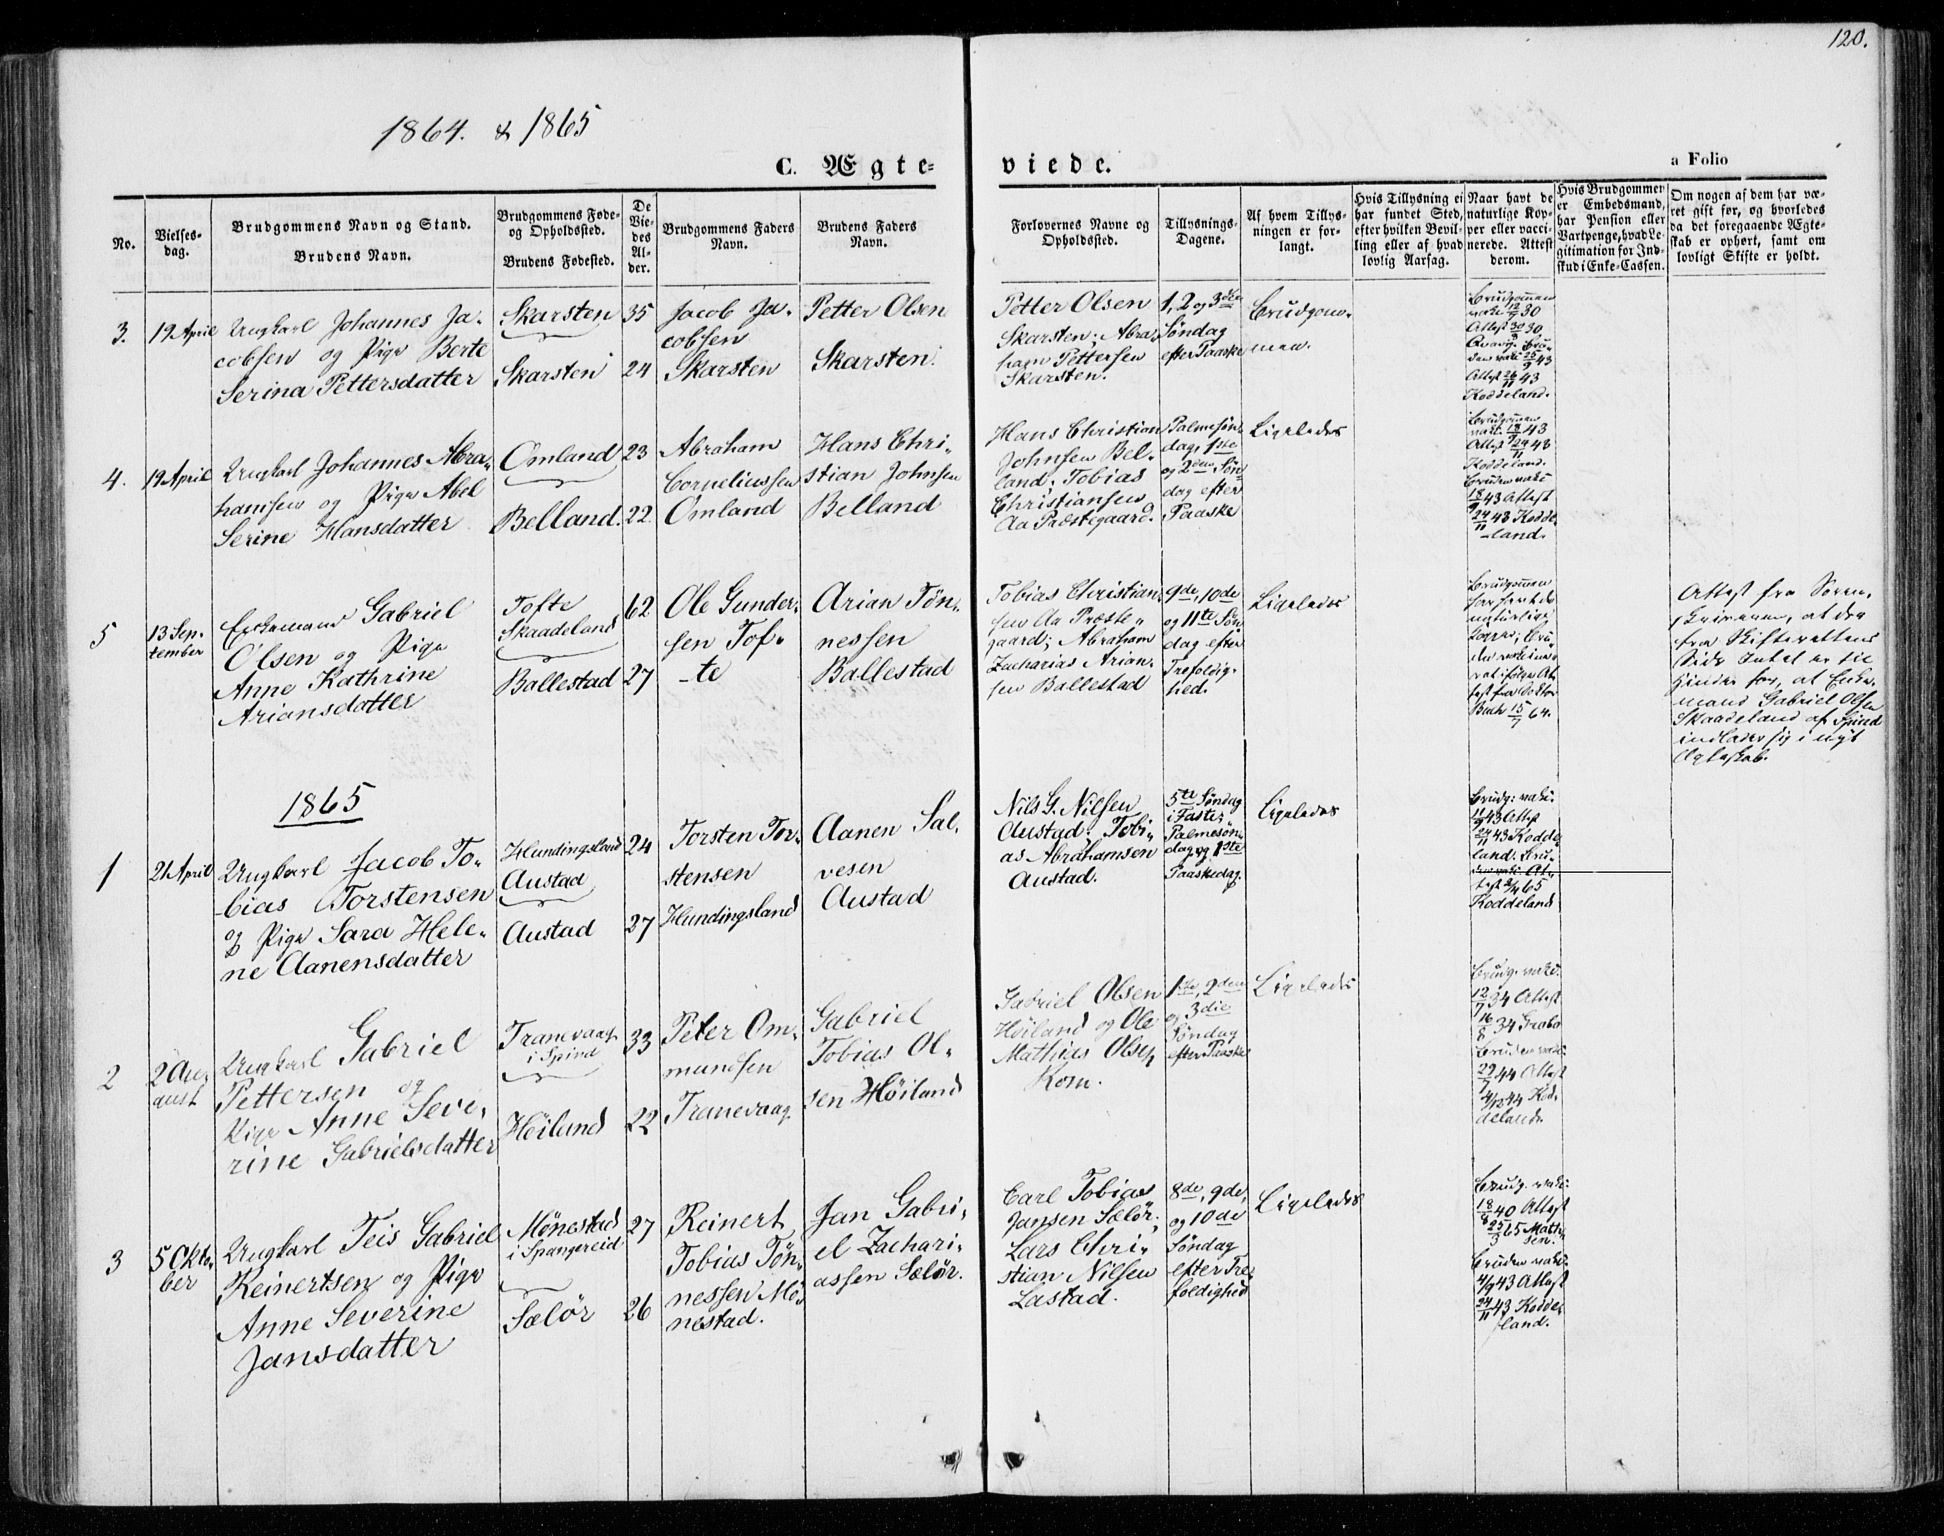 120.
1864. & 1865
C. Ægte-
viede.
a Folio
No.
Vielses-
dag.
Brudgommens Navn og Stand.
Brudens Navn.
Brudgommens Føde-
og Opholdssted.
Brudens Fødested.
De
Vie-
des
Al-
der.
Brudgommens Faders
Navn.
Brudens Faders
Navn.
Forlovernes Navne og
Opholdssted.
Tillysnings-
Dagene.
Af hvem Tillys-
ningen er for-
langt.
Hvis Tillysning ei
har fundet Sted,
efter hvilken Bevil-
ling eller af hvad
lovlig Aarsag.
Naar havt de
naturlige Kop-
per eller vacci-
nerede. Attest
derom.
Hvis Brudgommen
er Embedsmand,
har Pension eller
Vartpenge, hvad Le-
gitimation for Ind-
skud i Enke-Cassen.
Om nogen af dem har væ-
ret gift før, og hvorledes
da det foregaaende Ægte-
skab er ophørt, samt om
lovligt Skifte er holdt.
3.
19 April
Ungkarl Johannes Ja-
cobsen og Pige Berte
Serina Pettersdatter
Skarsten
Skarsten
35
24
Jacob Ja-
cobsen
Skarsten
Petter Olsen
Skarsten.
Petter Olsen
Skarsten. Abra-
ham Pettersen
Skarsten.
1, 2 og 3die
Søndag
efter Paaske
Brudgom-
men.
Brudgommen
vacc. 12/7 30
Attest 30/9 30
Bru-
den vacc. 25/9 43
Attest 26/11 43
Koddeland.
4.
19 April
Ungkarl Johannes Abra-
hamsen og Pige Abel
Serine Hansdatter
Omland
Belland.
23
22
Abraham
Corneliussen
Omland
Hans Chri-
stian Johnsen
Belland
Hans Christian
Johnsen Bel-
land. Tobias
Christiansen
Aa Præstegaard.
Palmesøn-
dag, 1ste
og 2den Søn-
dag efter
Paaske
Ligeledes
Brudgommen
vacc. 18/9 43
Attest 29/11 43
Koddeland.
Bruden vacc.
18/9 43 Attest
24/11 43 Kodde-
land.
5
13 Sep-
tember
Enkemand Gabriel
Olsen og Pige
Anne Kathrine
Ariansdatter
Tofte
Skaadeland
Ballestad
62
27
Ole Gunder-
sen Tof-
te
Arian Tøn-
nessen
Ballestad
Tobias Christian-
sen Aa Præste-
gaard; Abraham
Zacharias Arian-
sen Ballestad
9de, 10de
og 11te Søn
dag efter
Trefoldig-
hed.
Ligeledes
Brudgommen
har havt de
naturlige
Kopper; Bru-
den vaccine-
ret ifølge At-
test fra Doktor
Buch 15/7 64.
Attest fra Soren-
skriveren, at der
fra Skifterettens
Side Intet er til
Hinder for, at Enke-
mand Gabriel Olsen
Skaadeland af Spind
indlader sig i nyt
Ægteskab.
1865
1
21 April
Ungkarl Jacob To-
bias Torstensen
og Pige Sara Hele-
ne Aanensdatter
Hundingsland
Austad
Austad
24
27
Torsten Tor-
stensen
Hundingsland
Aanen Sal-
vesen
Austad
Nils G. Nilsen
Austad. Tobi-
as Abrahamsen
Austad.
5te Søndag
i Faste,
Palmesøn-
dag og 1ste
Paaskedag.
Ligeledes
Brudg. vacc.
43 Attest
24/11 43 Kodde
land. Bru-
den vacc. At-
test 65
Koddeland
2
2 Au-
gust
Ungkarl Gabriel
Pettersen og
Pige Anne Seve-
rine Gabrielsdatter
Tranevaag
i Spind
Høiland
33
22
Peter Om-
mundsen
Tranevaag
Gabriel
Tobias Ol-
sen Høiland
Gabriel Olsen
Høiland og Ole
Mathias Olsen
Kom.
1ste, 2den
og 3die
Søndag
efter Paaske
Ligeledes
Brudg. vacc.
12/7 34 Attest
16/8 34
Bruden vacc.
29/7 44 Attest
4/12 44 Kod-
deland.
3
5 Okto-
ber
Ungkarl Teis Gabriel
Reinertsen og Pige
Anne Severine
Jansdatter
Mønestad
i Spangereid
Sælør
27
26
Reinert
Tobias Tøn-
nessen Mø-
nestad.
Jan Gabri-
el Zachari-
assen Sælør.
Carl Tobias
Jansen Sælør.
Lars Chri-
stian Nilsen
Lastad.
8de, 9de,
og 10de
Søndag
efter Tre-
foldighed
Ligeledes
Brudg. vacc.
18/8 40 Attest
25/3 65 Matti-
sen.
Bruden vacc.
4/9 43 Attest
24/11 43 Kodde-
land.